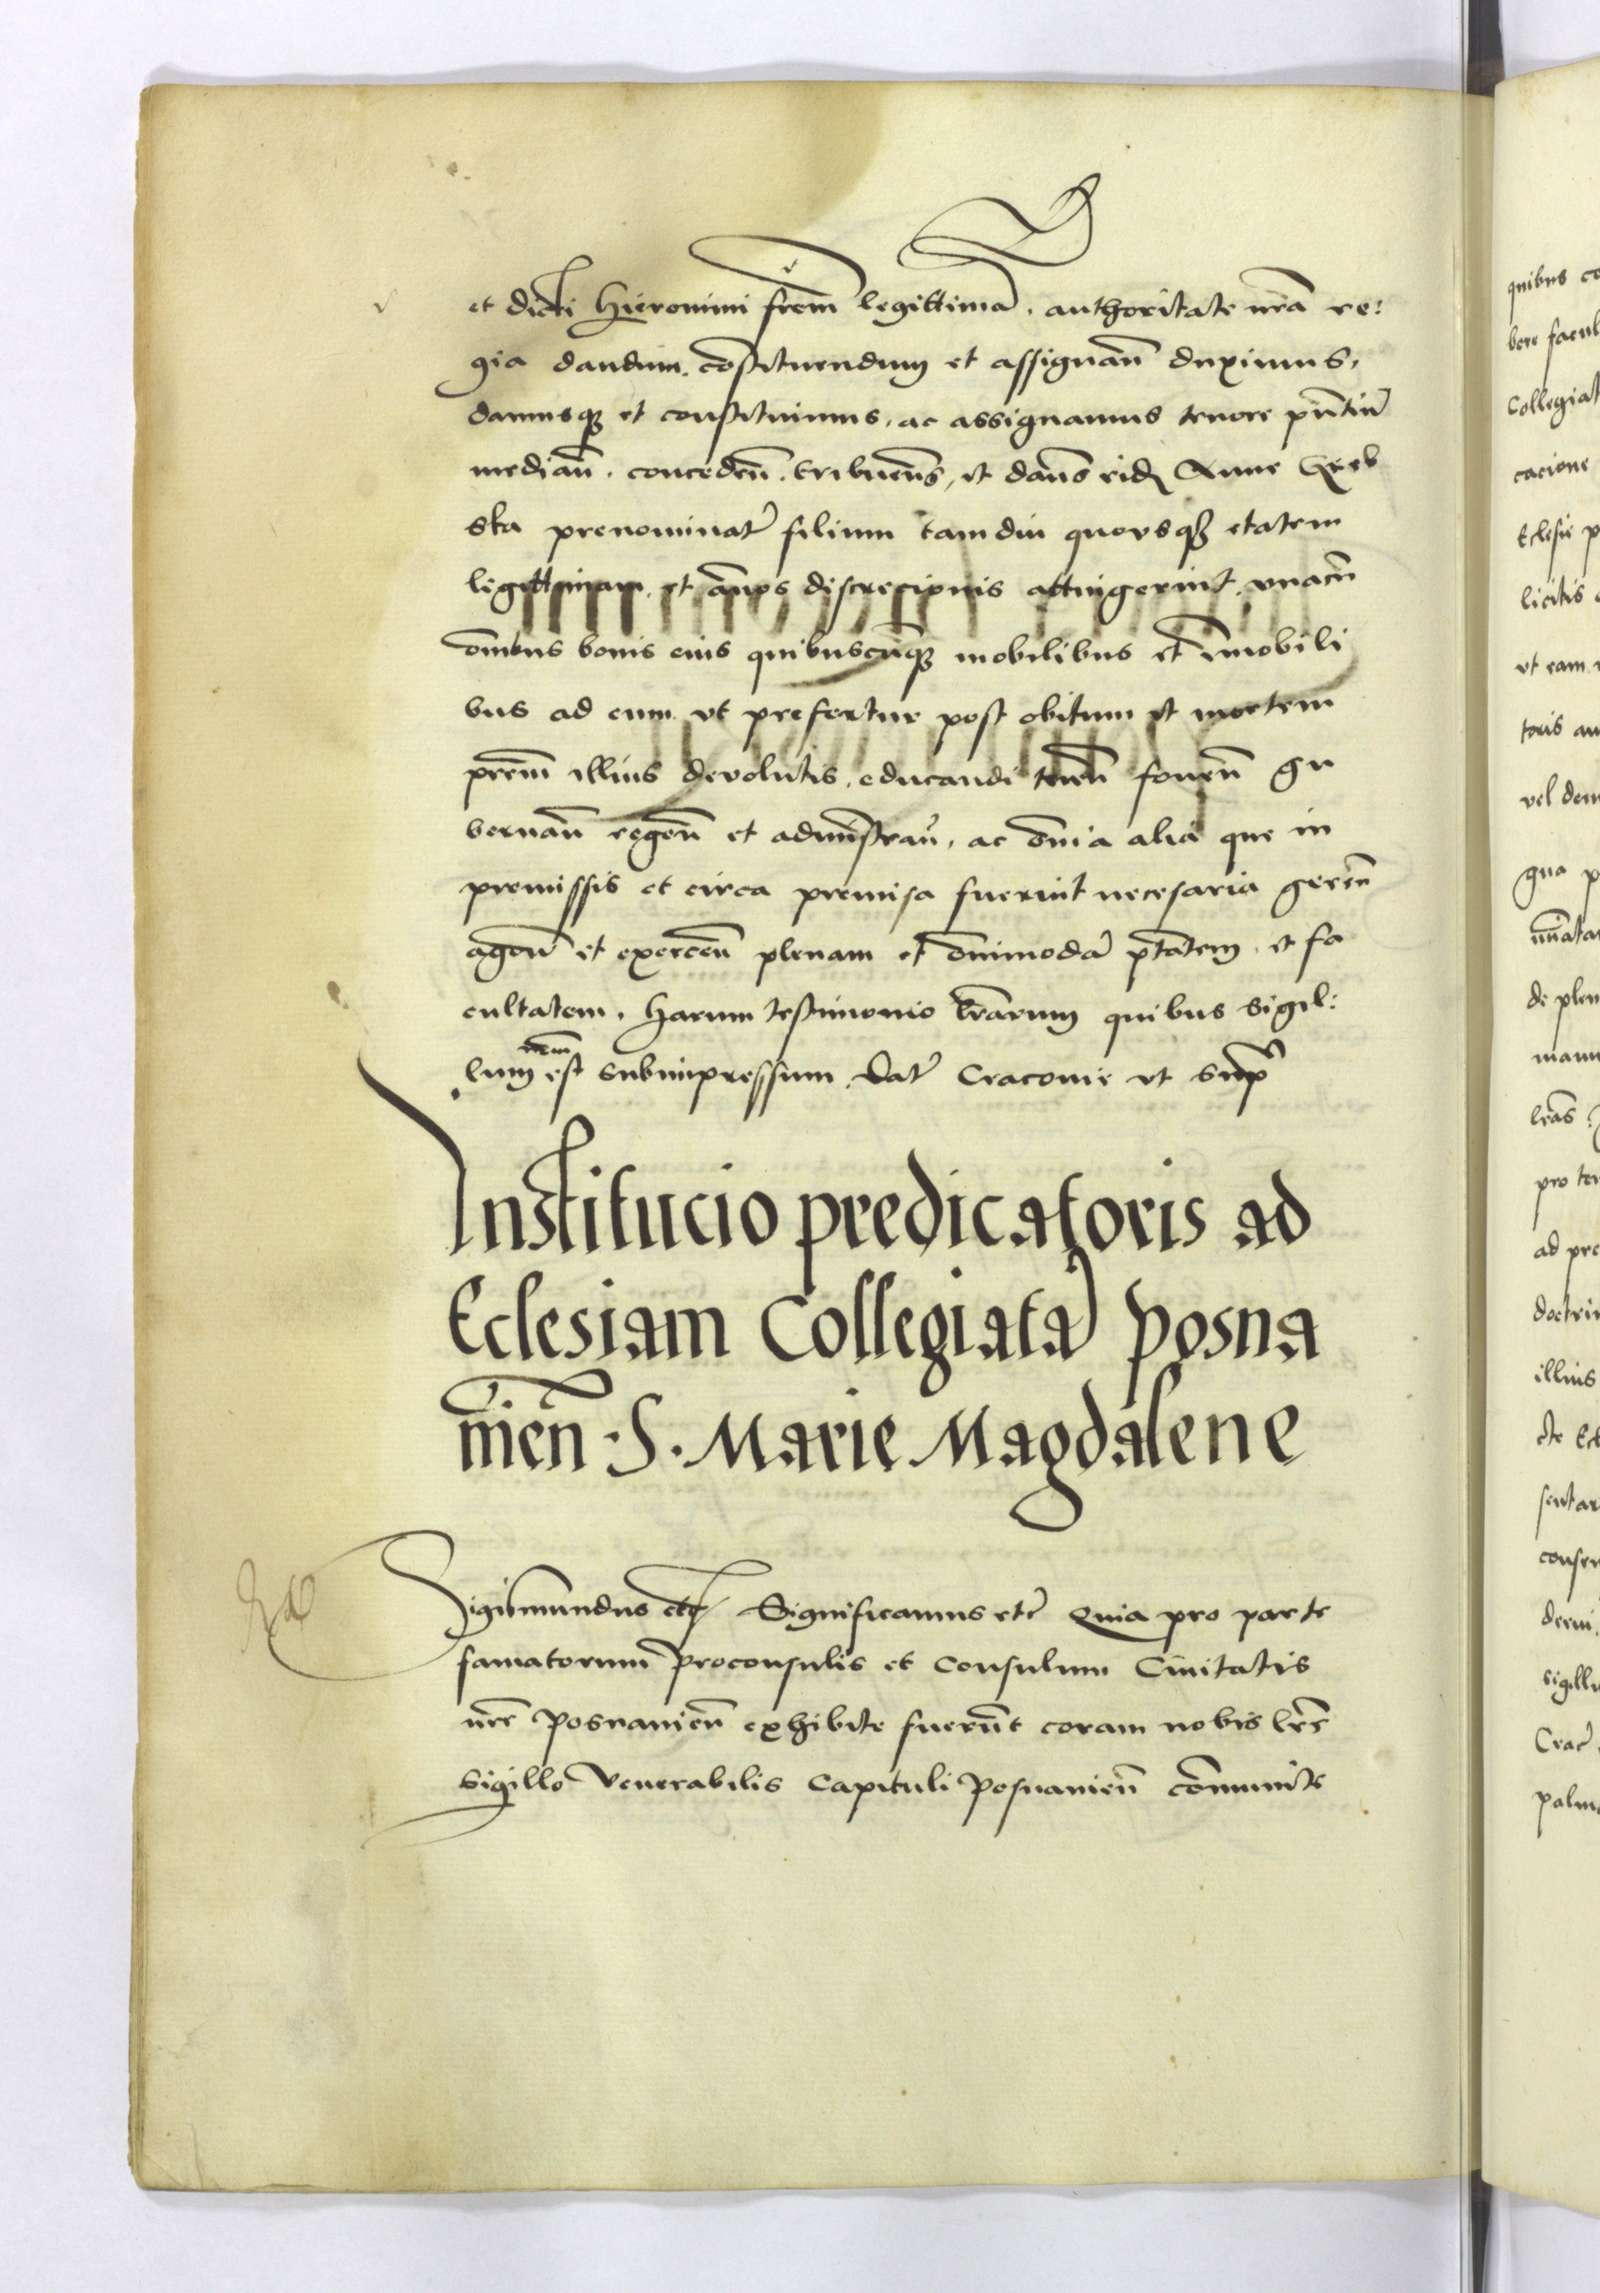 et dicti Hieronimi frem̃ legittimã . authoritate nrã re:
gia dandum . cõstituendum et assignañ duximus,
damusq3 et constituimus, ac assignamus tenore pñtiũ
mediañ . conceden̄ . tribuen̄s, et dan̄s eid̄ Anne
ska prenominat̃ filium tamdiu quousq3 etatem
legittimam et annos discrecionis attingerint, vnacũ
om̃ibus bonis eius quibuscũq3 mobilibus et im̃obili
bus ad eum vt prefertur post obitum et mortem
prem̃ illius devolutis, educandi teneñ foueñ gu
bernañ regeñ et adminĩstrañ, ac om̃ia alia que in
premissis et circa premisa fuerint necesaria gereñ
ageñ et exerceñ plenam et om̃imodã ptãtem, et fa
cultatem, harum testimonio lrãrum quibus Sigil:
lum nrm̃ est subimpressum, Dat̃ Cracovie vt sup̃
Institucio predicatoris ad
Eclesiam Collegiatã Posna
nieñ . S . Marie Magdalene
Sigismundus etc̃ Significamus etc̃ Quia pro parte
famatorum proconsulis et Consulum Ciuitatis
nrẽ Posnanieñ exhibite fuerũt coram nobis lrẽ
Sigillo Venerabilis Capituli Posnanieñ com̃unite
quibus co
bere facul
Collegiat
cacione
Eclesie p
licitis
vt eam
toris au
vel dem
gua p
de plen
manu
lrãs
pro te
ad pre
doctri
illius
sentar
conser
sigillu
Crac̃
palm